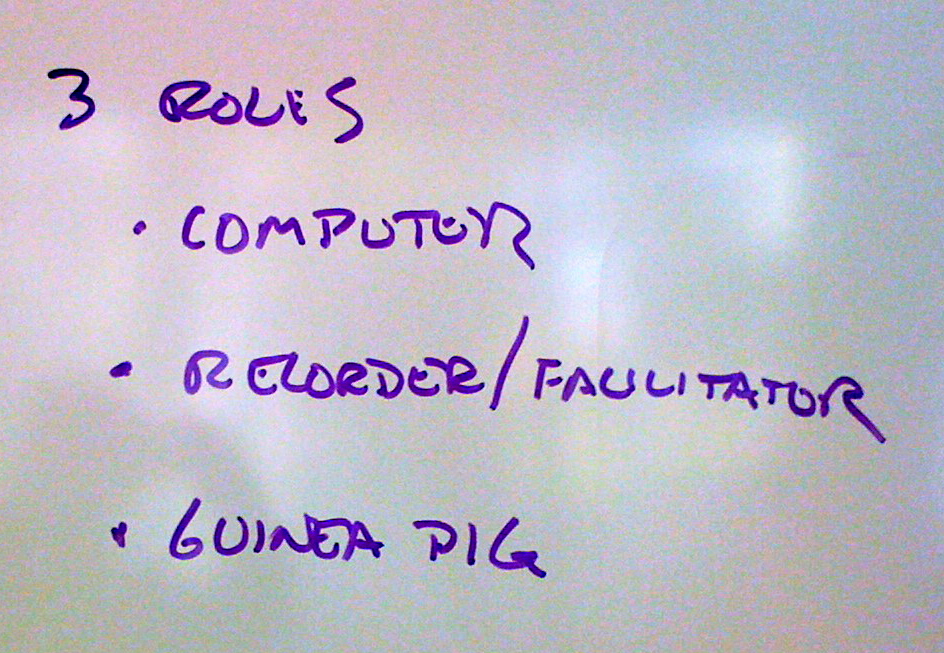 3 ROLES
• COMPUTER
• RECORDER/FACILITATOR
• GUINEA PIG